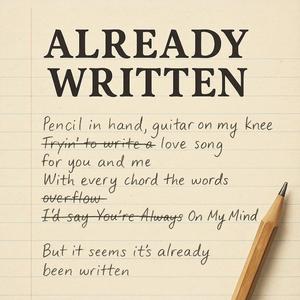 ALREADY
WRITTEN
Pencil in hand, guitar on my knee
Tryin' to write a love song
for you and me
With every chord the words
overflow
I'd say You're Always On My Mind
But it seems it's already
been written